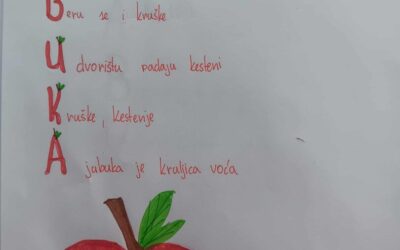 Beru se i kruške
U dvorištu padaju kesteni
Kruške, kestenje
A jabuka je kraljica voća